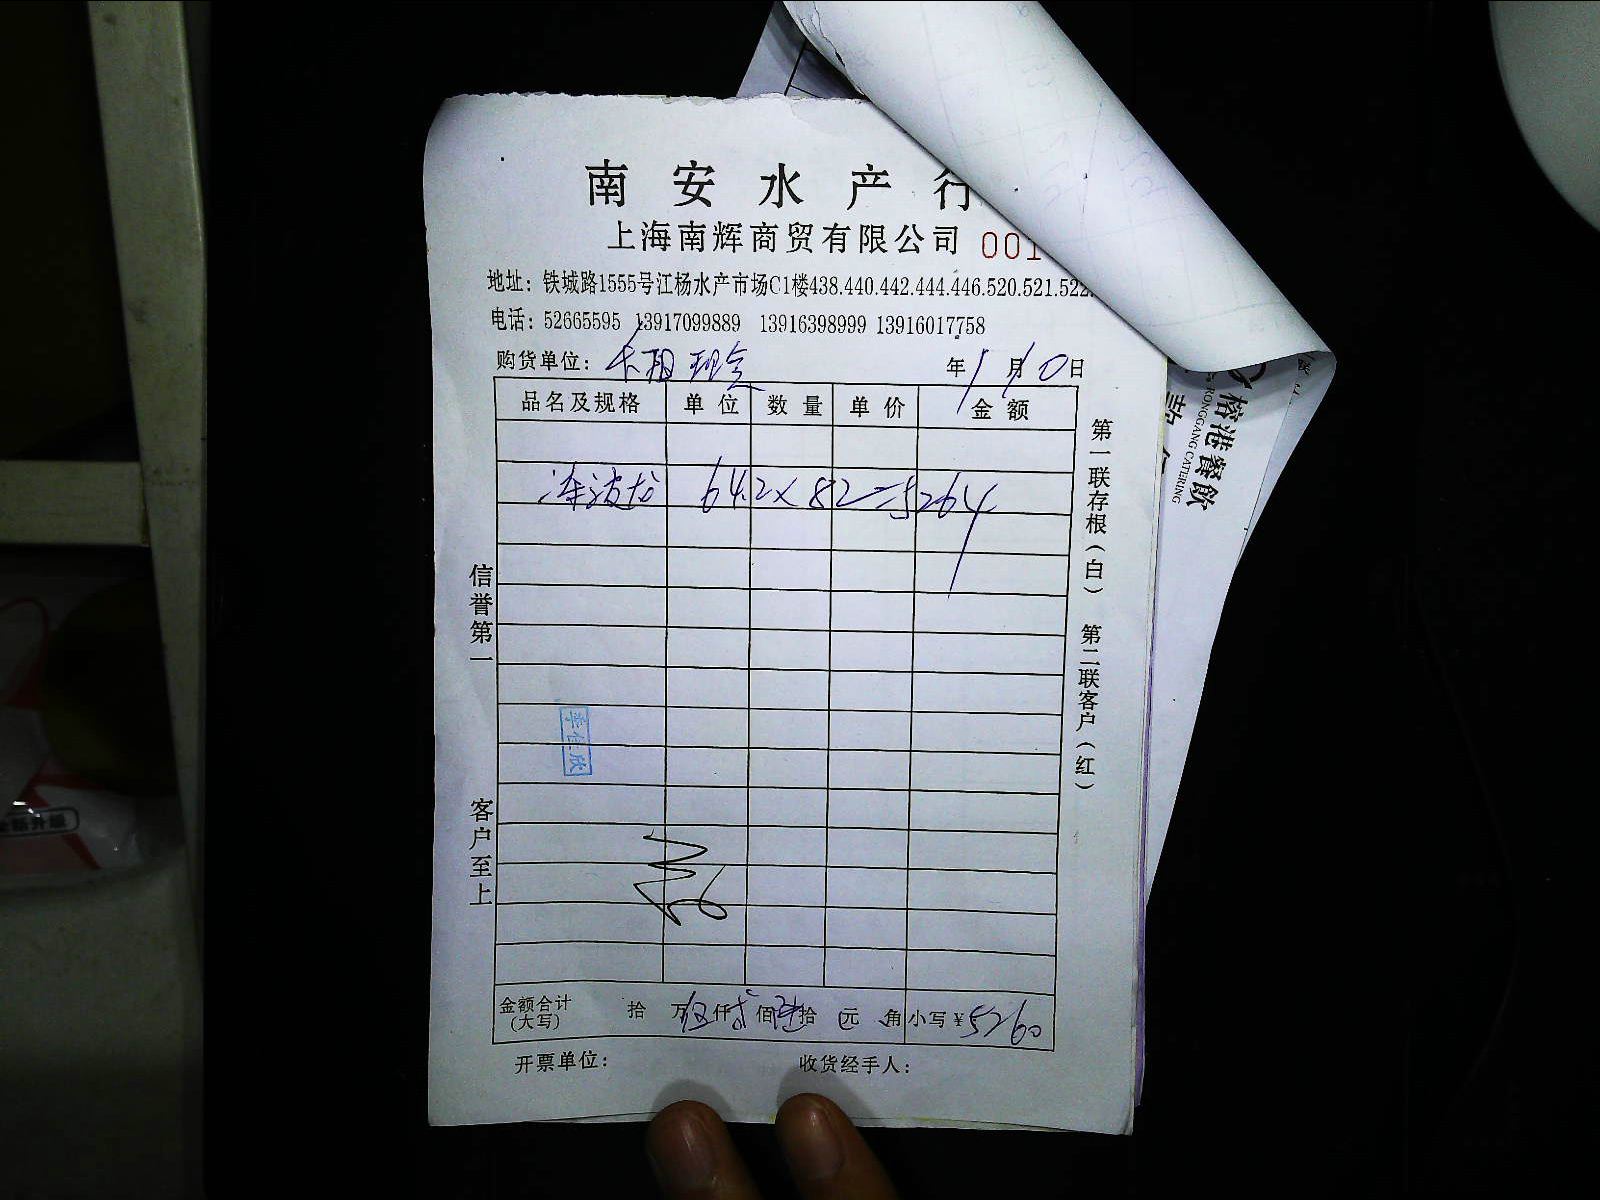 南安水产行
上海南辉商贸有限公司 001
地址：铁城路1555号江杨水产市场C1楼438.440.442.444.446.520.521.522.
电话：52665595 13917099889 13916398999 13916017758
购货单位： 现金 年 1 月 10 日
品名及规格 单位 数量 单价 金额
冻波龙 64.2×82=5264
信誉第一
客户至上
第一联存根（白） 第二联客户（红）
金额合计（大写） 拾 万 伍 仟 贰 佰 陆 拾 元 角 小写￥5260
开票单位： 收货经手人：
裕港餐飲
RONGGANG CATERING